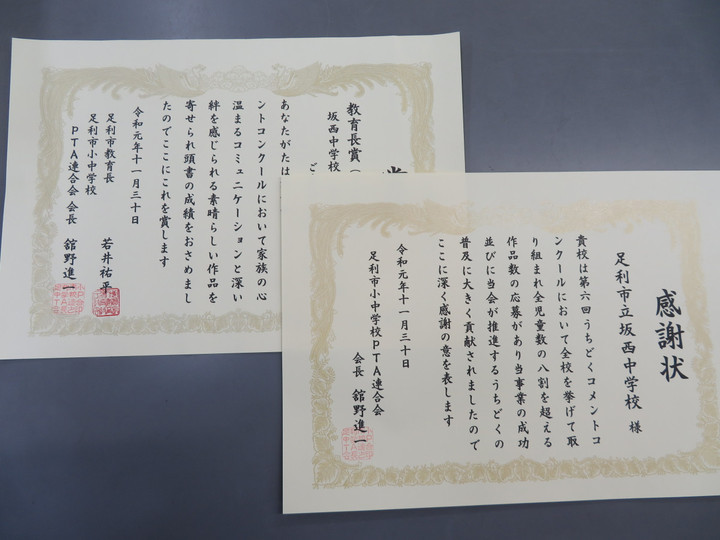 教育長賞（
坂西中学校
ご
あなたがたは
ントコンクールにおいて家族の心
温まるコミュニケーションと深い
絆を感じられる素晴らしい作品を
寄せられ頭書の成績をおさめまし
たのでここにこれを賞します
令和元年十一月三十日
足利市教育長 若井祐平
足利市小中学校
PTA連合会 会長 舘野進一
感謝状
足利市立坂西中学校 様
貴校は第六回うちどくコメントコ
ンクールにおいて全校を挙げて取
り組まれ全児童数の八割を超える
作品数の応募があり当事業の成功
並びに当会が推進するうちどくの
普及に大きく貢献されましたので
ここに深く感謝の意を表します
令和元年十一月三十日
足利市小中学校PTA連合会
会長 舘野進一